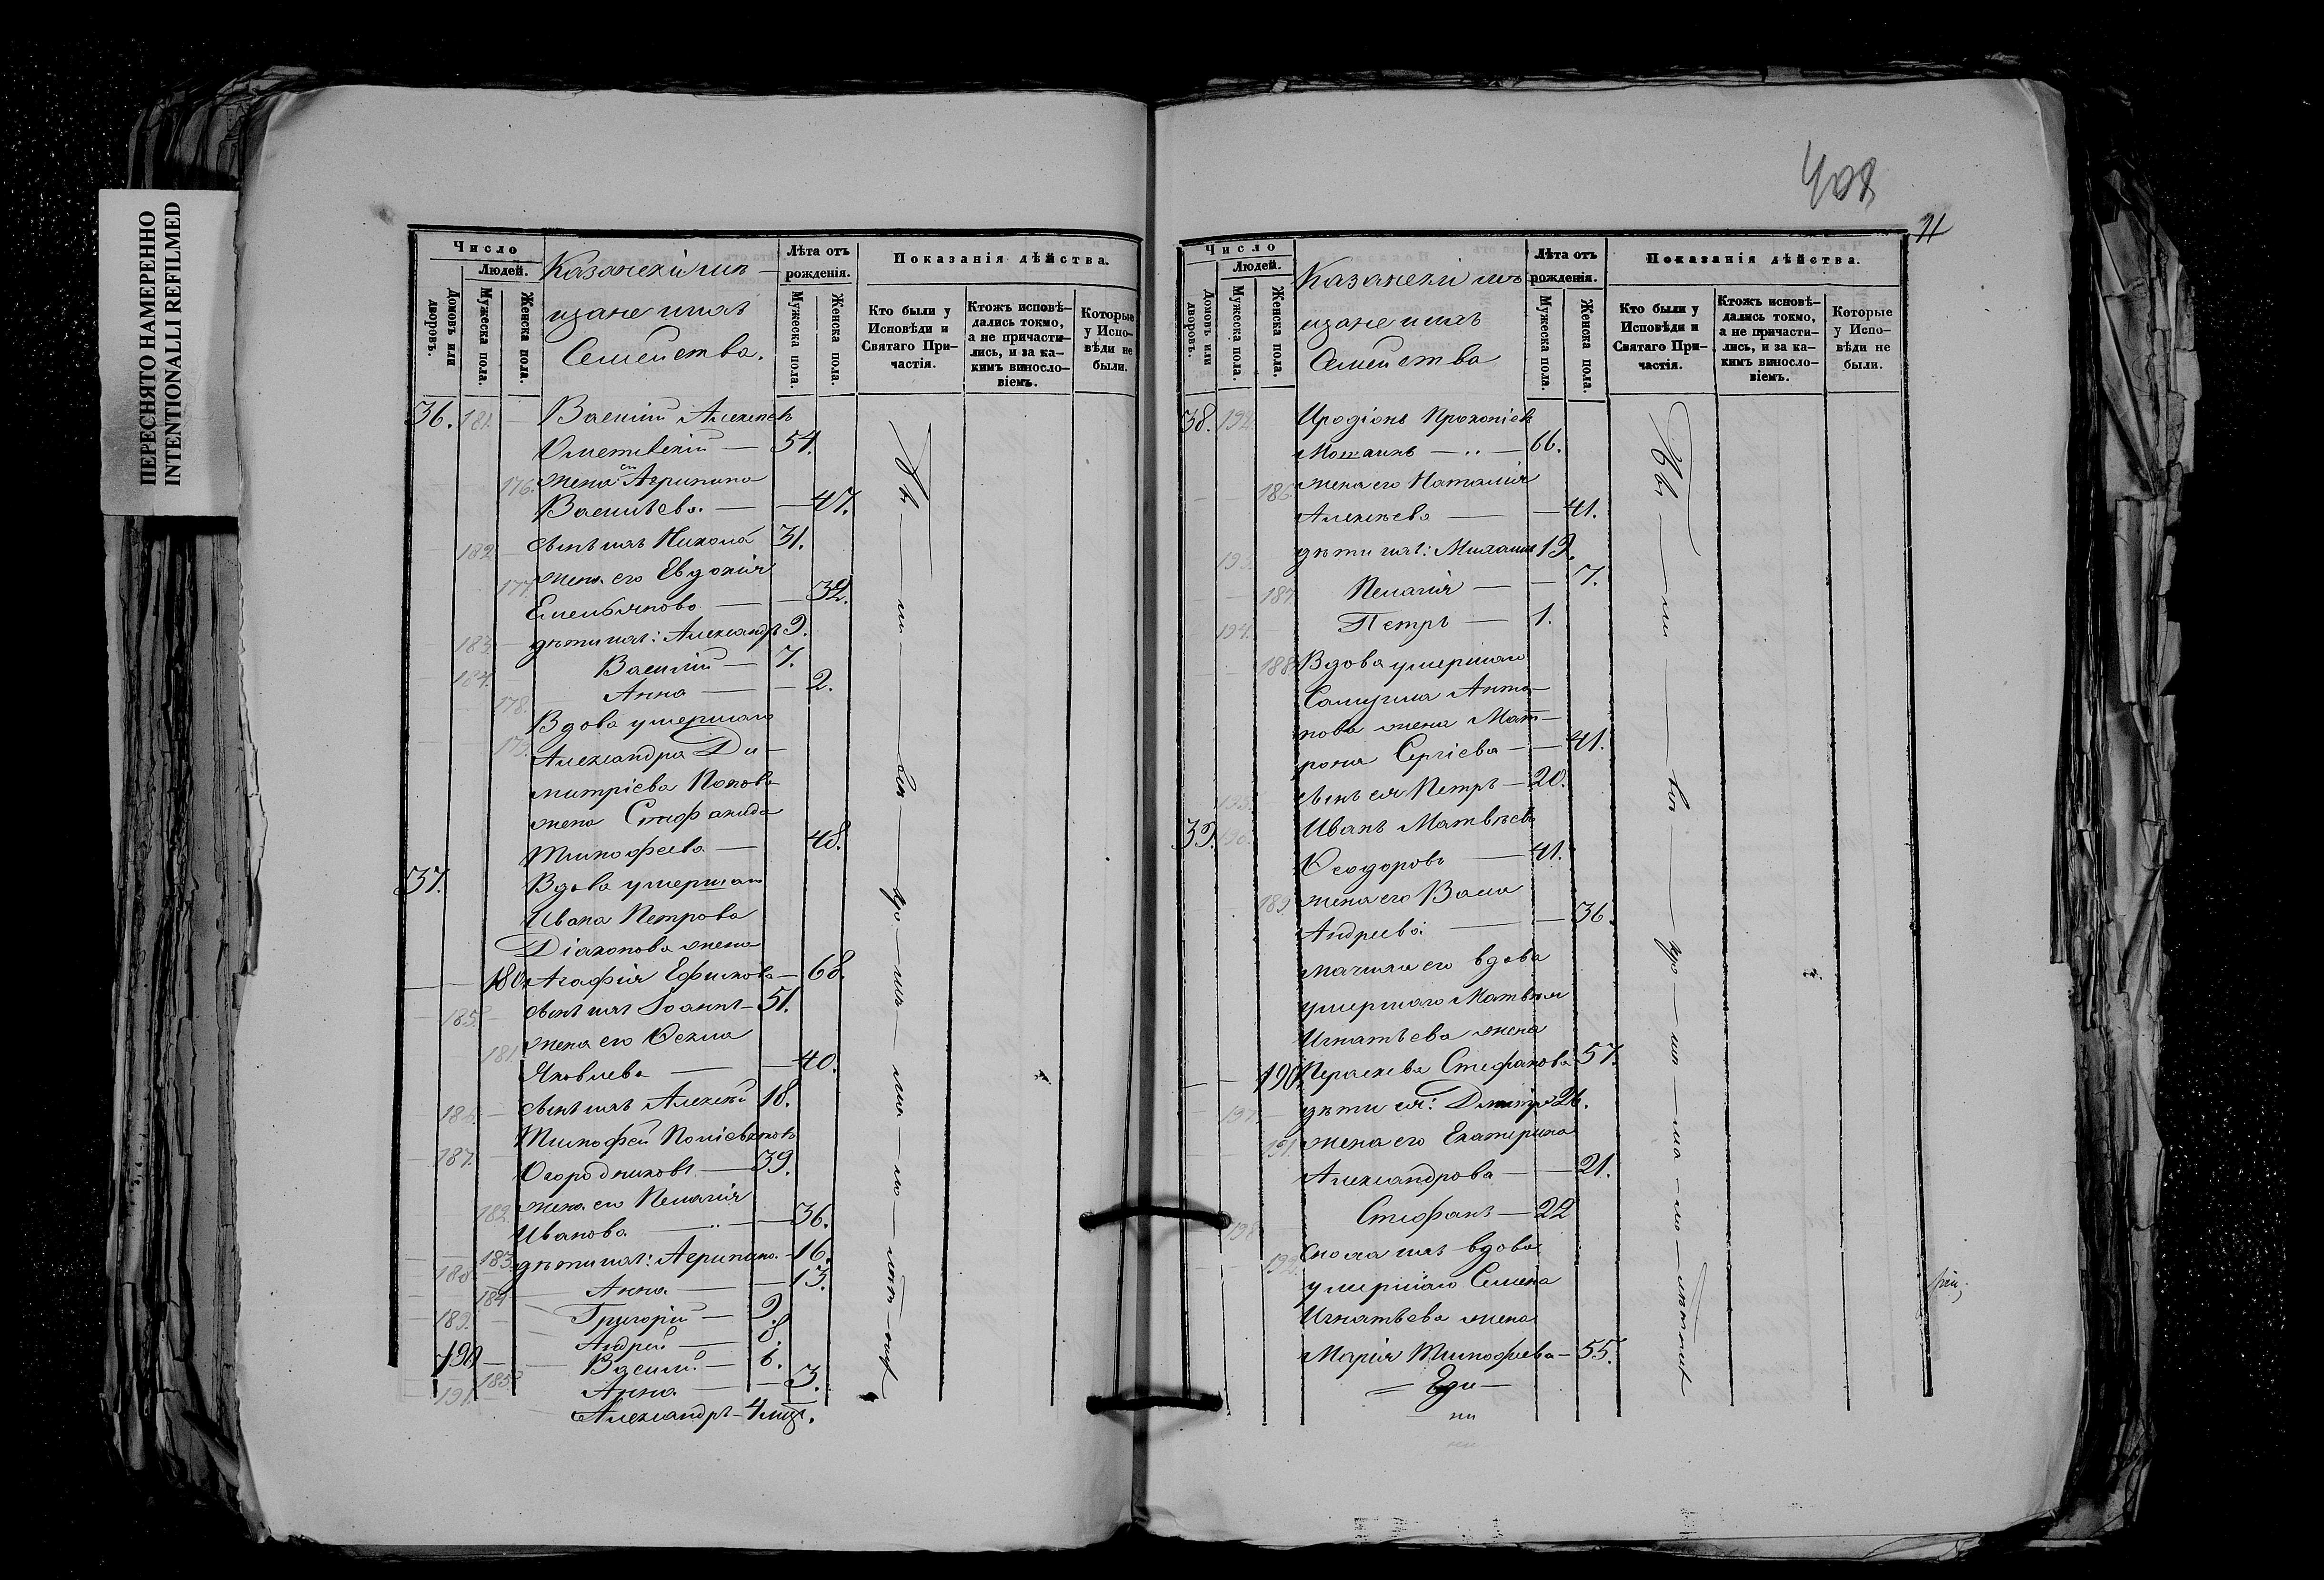 ПЕРЕСНЯТО НАМЕРЕННО
INTENTIONALLI REFILMED
Число
Людей.
Домовъ или дворовъ.
Мужеска пола.
Женска пола.
Лѣта отъ рожденія.
Мужеска пола.
Женска пола.
Показанія дѣйства.
Кто были у Исповѣди и Святаго Причастія.
Ктожъ исповѣдались токмо, а не причастились, и за какимъ винословіемъ.
Которые у Исповѣди не были.
щане и ихъ
Семейства.
36. 181. Василій Алексѣевъ
54.
176. жена его Агрипина
Васильева — 47.
182. сынъ ихъ Никола 31.
177. жена его Евдокія
Емельянова — 32.
183. дѣти ихъ: Александръ 9.
184. Василій — 7.
178. Анна — 2.
Вдова умершаго
179. Александра Ди-
митріева Попова
жена Стефанида
Тимофеева — 48.
37. Вдова умершаго
Ивана Петрова
Діаконова жена
180. Агафія Ефимова — 68.
185. сынъ ихъ Іоаннъ — 51.
181. жена его Ѳекла
Яковлева — 40.
186. сынъ ихъ Алексѣй 18.
187. Тимофей
Огородниковъ — 39.
182. жена его Пелагія
Иванова — 36.
183. дѣти ихъ: Агрипина — 16.
188. 184. Анна — 13.
189. Григорій — 9.
190. Андрей — 8.
Василій — 6.
191. 185. Анна — 3.
Александръ — 4 мѣс.
408
11
Число
Людей.
Домовъ или дворовъ.
Мужеска пола.
Женска пола.
Лѣта отъ рожденія.
Мужеска пола.
Женска пола.
Показанія дѣйства.
Кто были у Исповѣди и Святаго Причастія.
Ктожъ исповѣдались токмо, а не причастились, и за какимъ винословіемъ.
Которые у Исповѣди не были.
щане и ихъ
Семейства
38. 192. Иродіонъ Прокопіевъ
66.
186. жена его Наталія
Алексѣева — 41.
193. дѣти ихъ: Михаилъ 19.
187. Пелагія — 7.
194. Петръ — 1.
188. Вдова умершаго
Самуила Анто-
нова жена Мат-
рона Сергіева — 41.
195. сынъ ея Петръ — 20.
39. 196. Иванъ Матвѣевъ
Ѳеодоровъ — 41.
189. жена его Васса
Андреева — 36.
мачиха его вдова
умершаго Матвѣя
Игнатьева жена
190. Параскева Стефанова 57.
197. дѣти ея: Димитрій 26.
191. жена его Екатерина
Александрова — 21.
198. Стефанъ — 22
192. Сноха ихъ вдова
умершаго Семена
Игнатьева жена
Марія Тимофеева — 55.